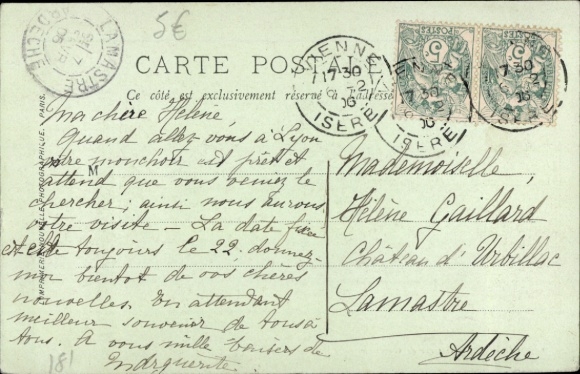 5€
LAMASTRE
ARDÈCHE
CARTE POSTALE
Ce côté est exclusivement réservé à l'adresse
VIENNE
17 30
ISÈRE
17 30
ISÈRE
5
5
POSTES
Ma chère Hélène,
Quand allez vous à Lyon
votre mouchoir est prêt et
attend que vous veniez le
chercher; ainsi nous aurons
votre visite - La date fixée
est-elle toujours le 22. donnez-
moi bientôt de vos chères
nouvelles. En attendant
meilleur souvenir de tous à
tous. A vous mille baisers de
Marguerite.
M
Mademoiselle,
Hélène Gaillard
Château d'Urbillac
Lamastre
Ardèche
181
PHOTOGRAPHIQUE. PARIS.